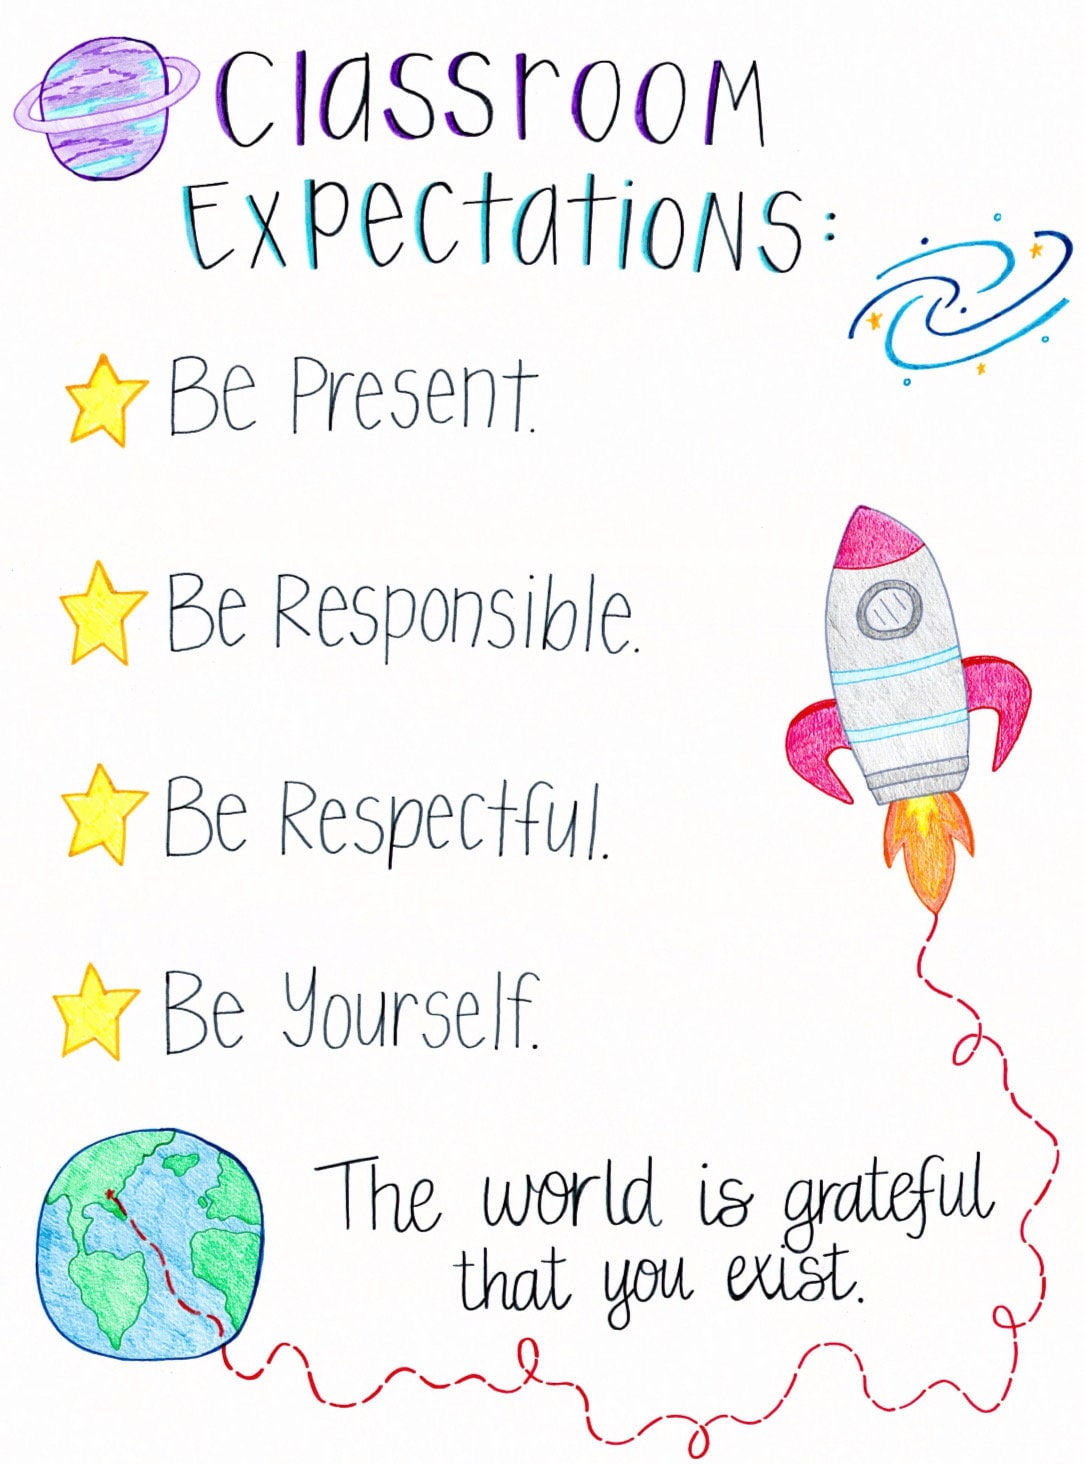 Classroom
Expectations:
Be Present.
Be Responsible.
Be Respectful.
Be Yourself.
The world is grateful
that you exist.